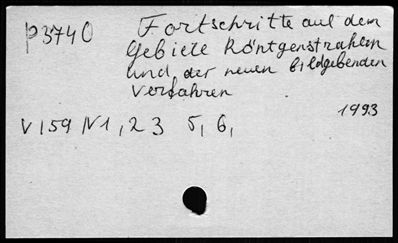 p3740 Fortschritte auf dem
Gebiete Röntgenstrahlen
und der neuen bildgebenden
Verfahren
1993
V159 N1, 2 3 5, 6,